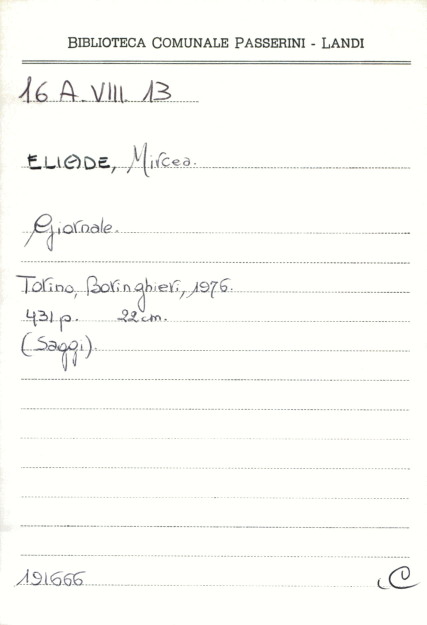 BIBLIOTECA COMUNALE PASSERINI - LANDI
16 A. VIII. 13
ELIADE, Mircea.
Giornale.
Torino, Boringhieri, 1976.
431 p. 22 cm.
(Saggi).
191666 C